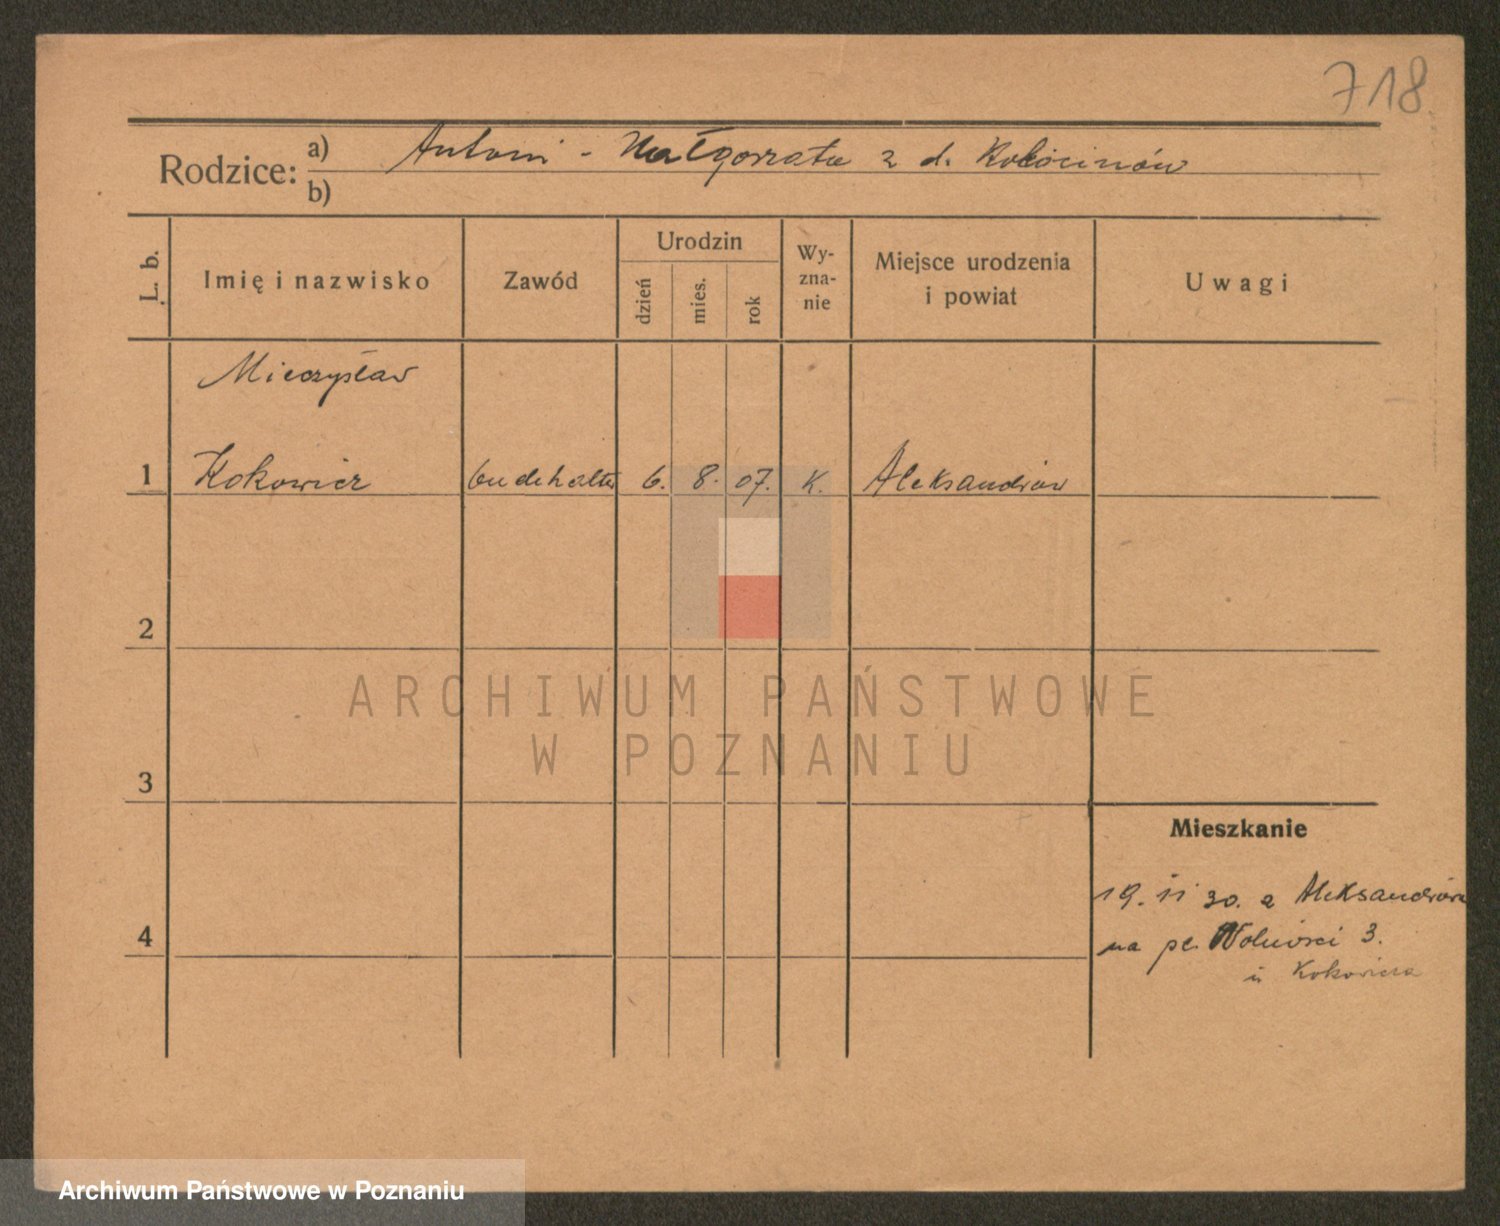 718
Antoni - Małgorzata z d. Kołocinów
Rodzice: a)
b)
L. b.
Imię i nazwisko
Zawód
Urodzin
dzień
mies.
rok
Wy-
zna-
nie
Miejsce urodzenia
i powiat
Uwagi
Mieczysław
1 Kokowicz buchehalter 6. 8. 07. K. Aleksandrów
2
3
4
ARCHIWUM PAŃSTWOWE
W POZNANIU
Mieszkanie
19. 11 30. z Aleksandrowa
na pl. Wolności 3.
u Kokowicza
Archiwum Państwowe w Poznaniu